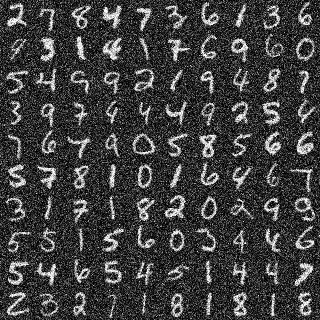 2 7 8 4 7 3 6 1 3 6
9 3 1 4 1 7 6 9 6 0
5 4 9 9 2 1 9 4 8 7
3 9 7 4 4 4 9 2 5 4
7 6 7 9 0 5 8 5 6 6
5 7 8 1 0 1 6 4 6 7
3 1 7 1 8 2 0 2 9 9
5 5 1 5 6 0 3 4 4 6
5 4 6 5 4 5 1 4 4 7
2 3 2 7 1 8 1 8 1 8